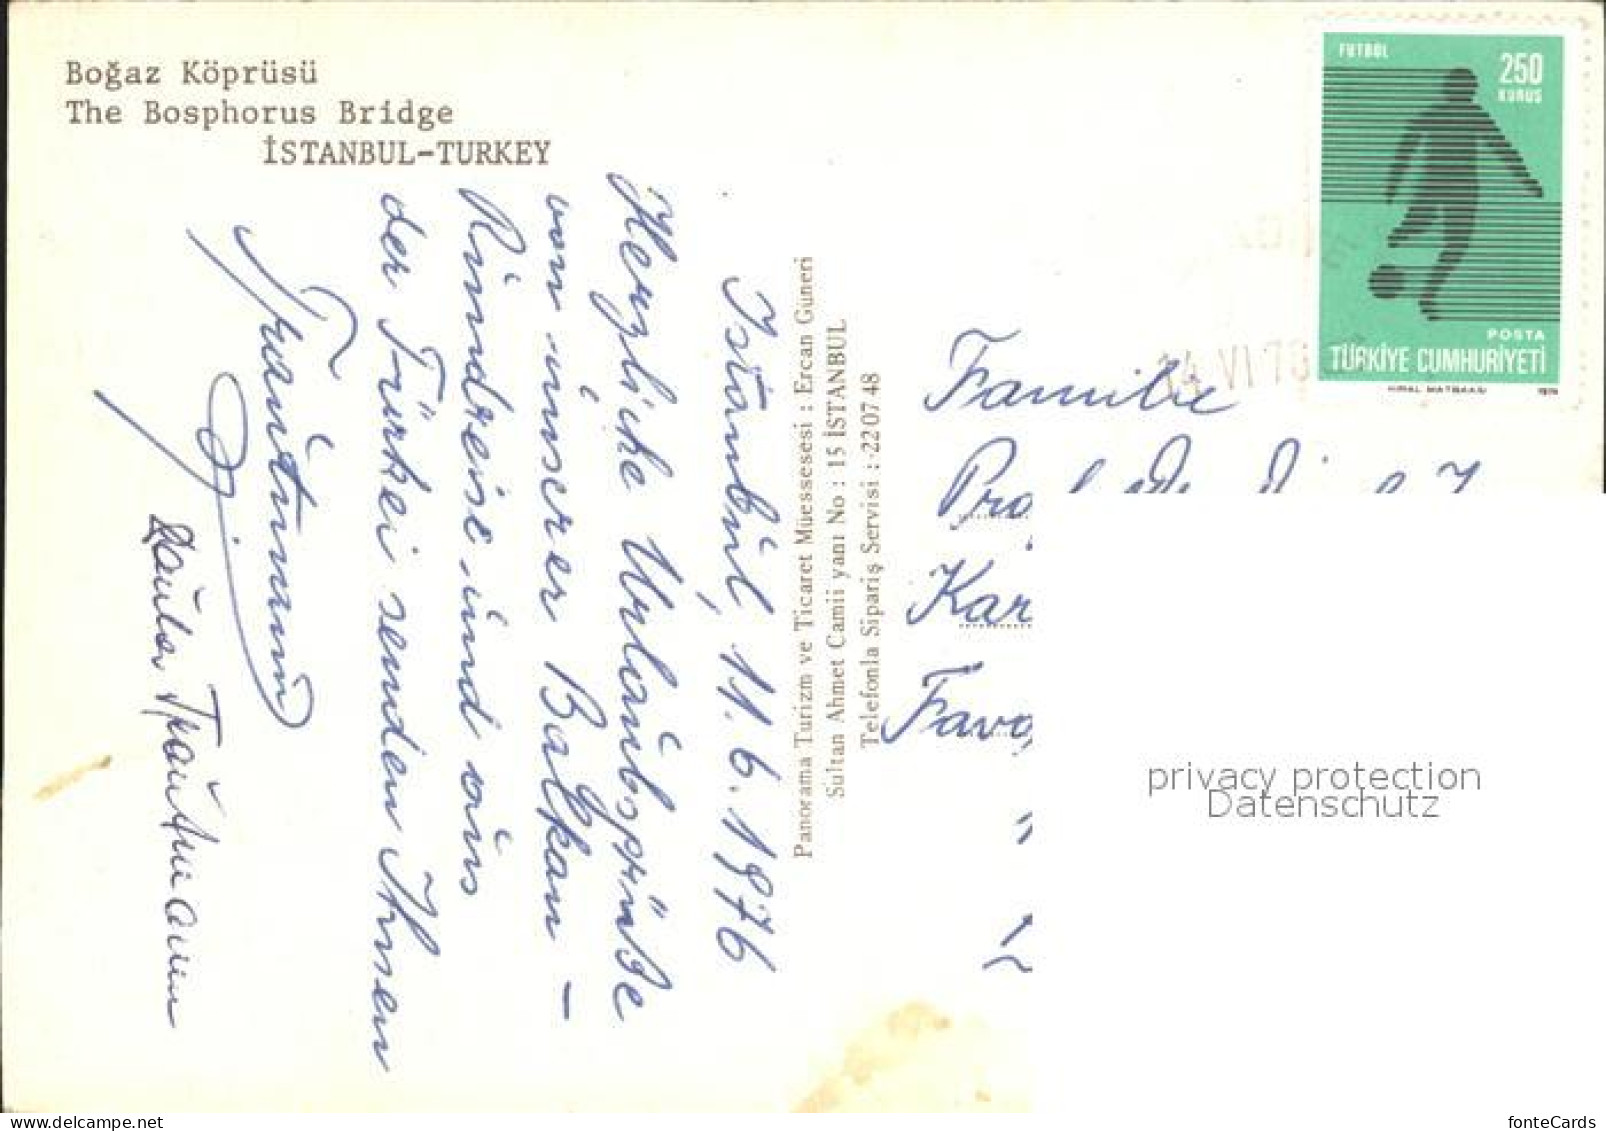 Boğaz Köprüsü
The Bosphorus Bridge
İSTANBUL-TURKEY
Istanbul, 11.6.1976
Herzliche Urlaubsgrüße
von unserer Balkan-
Rundreise und aus
der Türkei senden Ihnen
Trautmann
Trautmann
Panorama Turizm ve Ticaret Müessesesi : Ercan Güneri
Sultan Ahmet Camii yanı No : 15 İSTANBUL
Telefonla Sipariş Servisi : 22 07 48
FUTBOL
250
KURUŞ
POSTA
TÜRKİYE CUMHURİYETİ
14 VI 76
Familie
Kar
Favo
privacy protection
Datenschutz
fonteCards